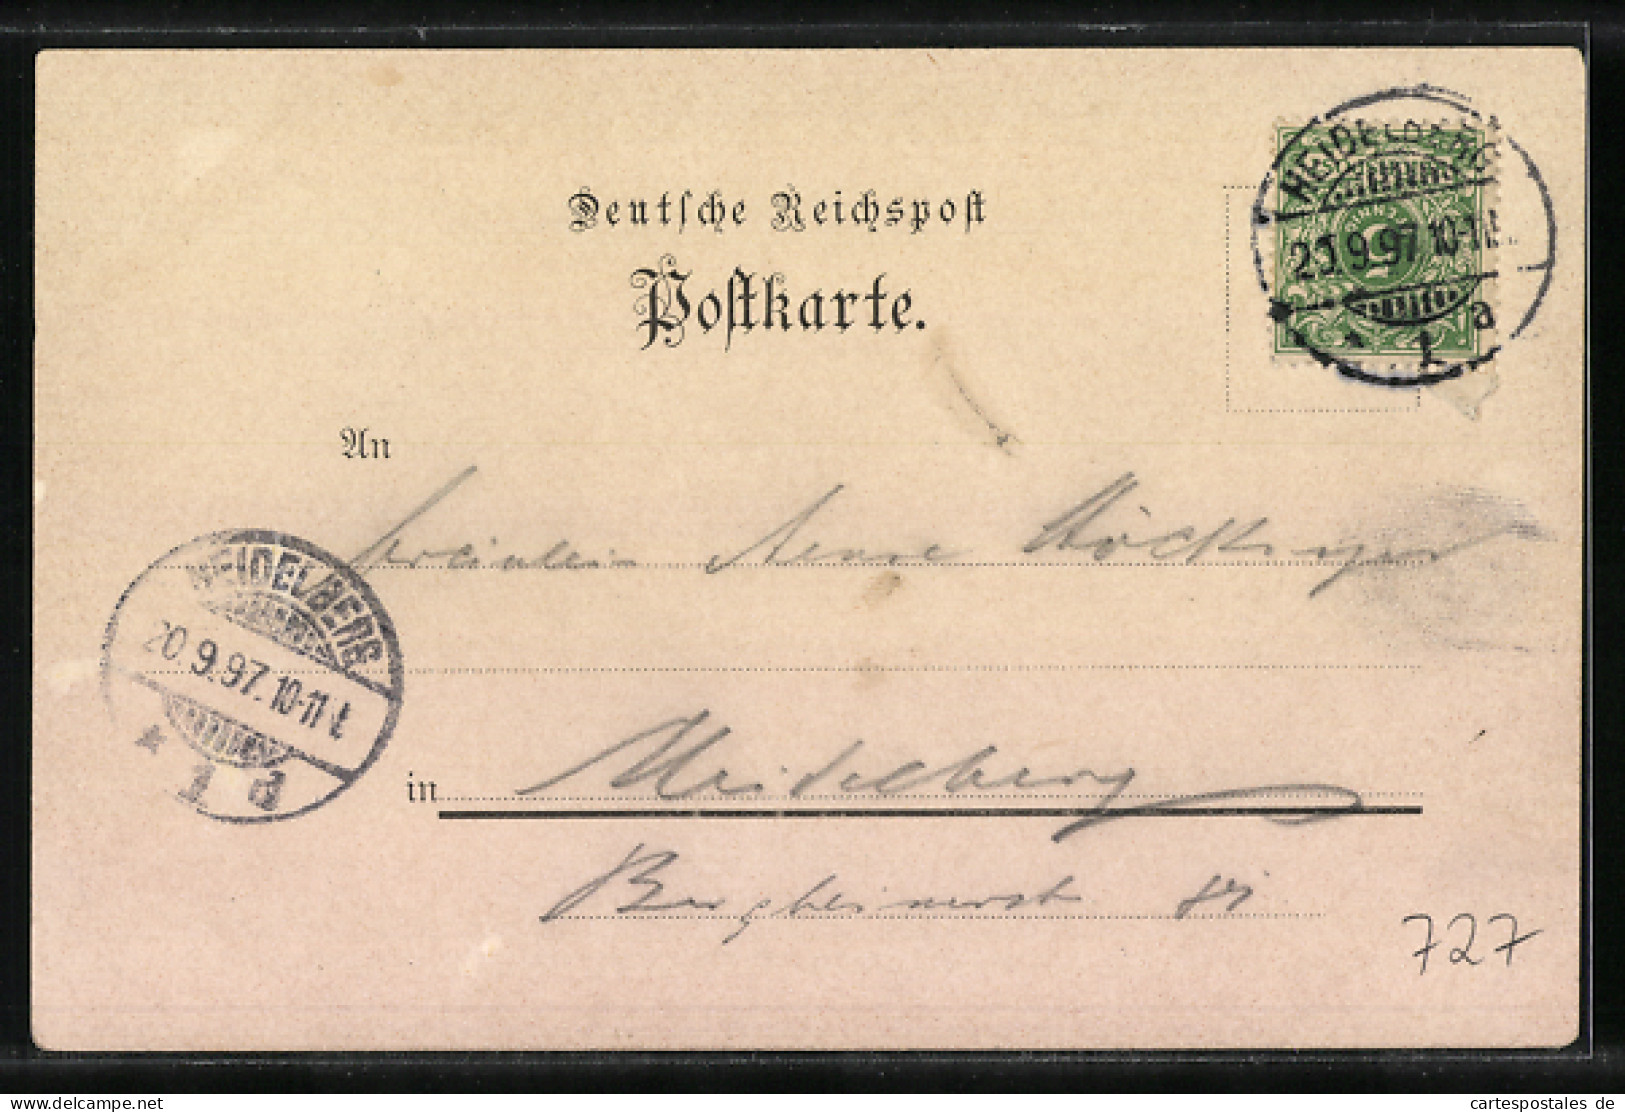 Deutsche Reichspost
Postkarte.
HEIDELBERG
20.9.97.10-11V.
1 a
5
An
Fräulein Anna
HEIDELBERG
20.9.97.10-11V.
1 d
in Heidelberg
Bergheimerst
727
cartespostales de